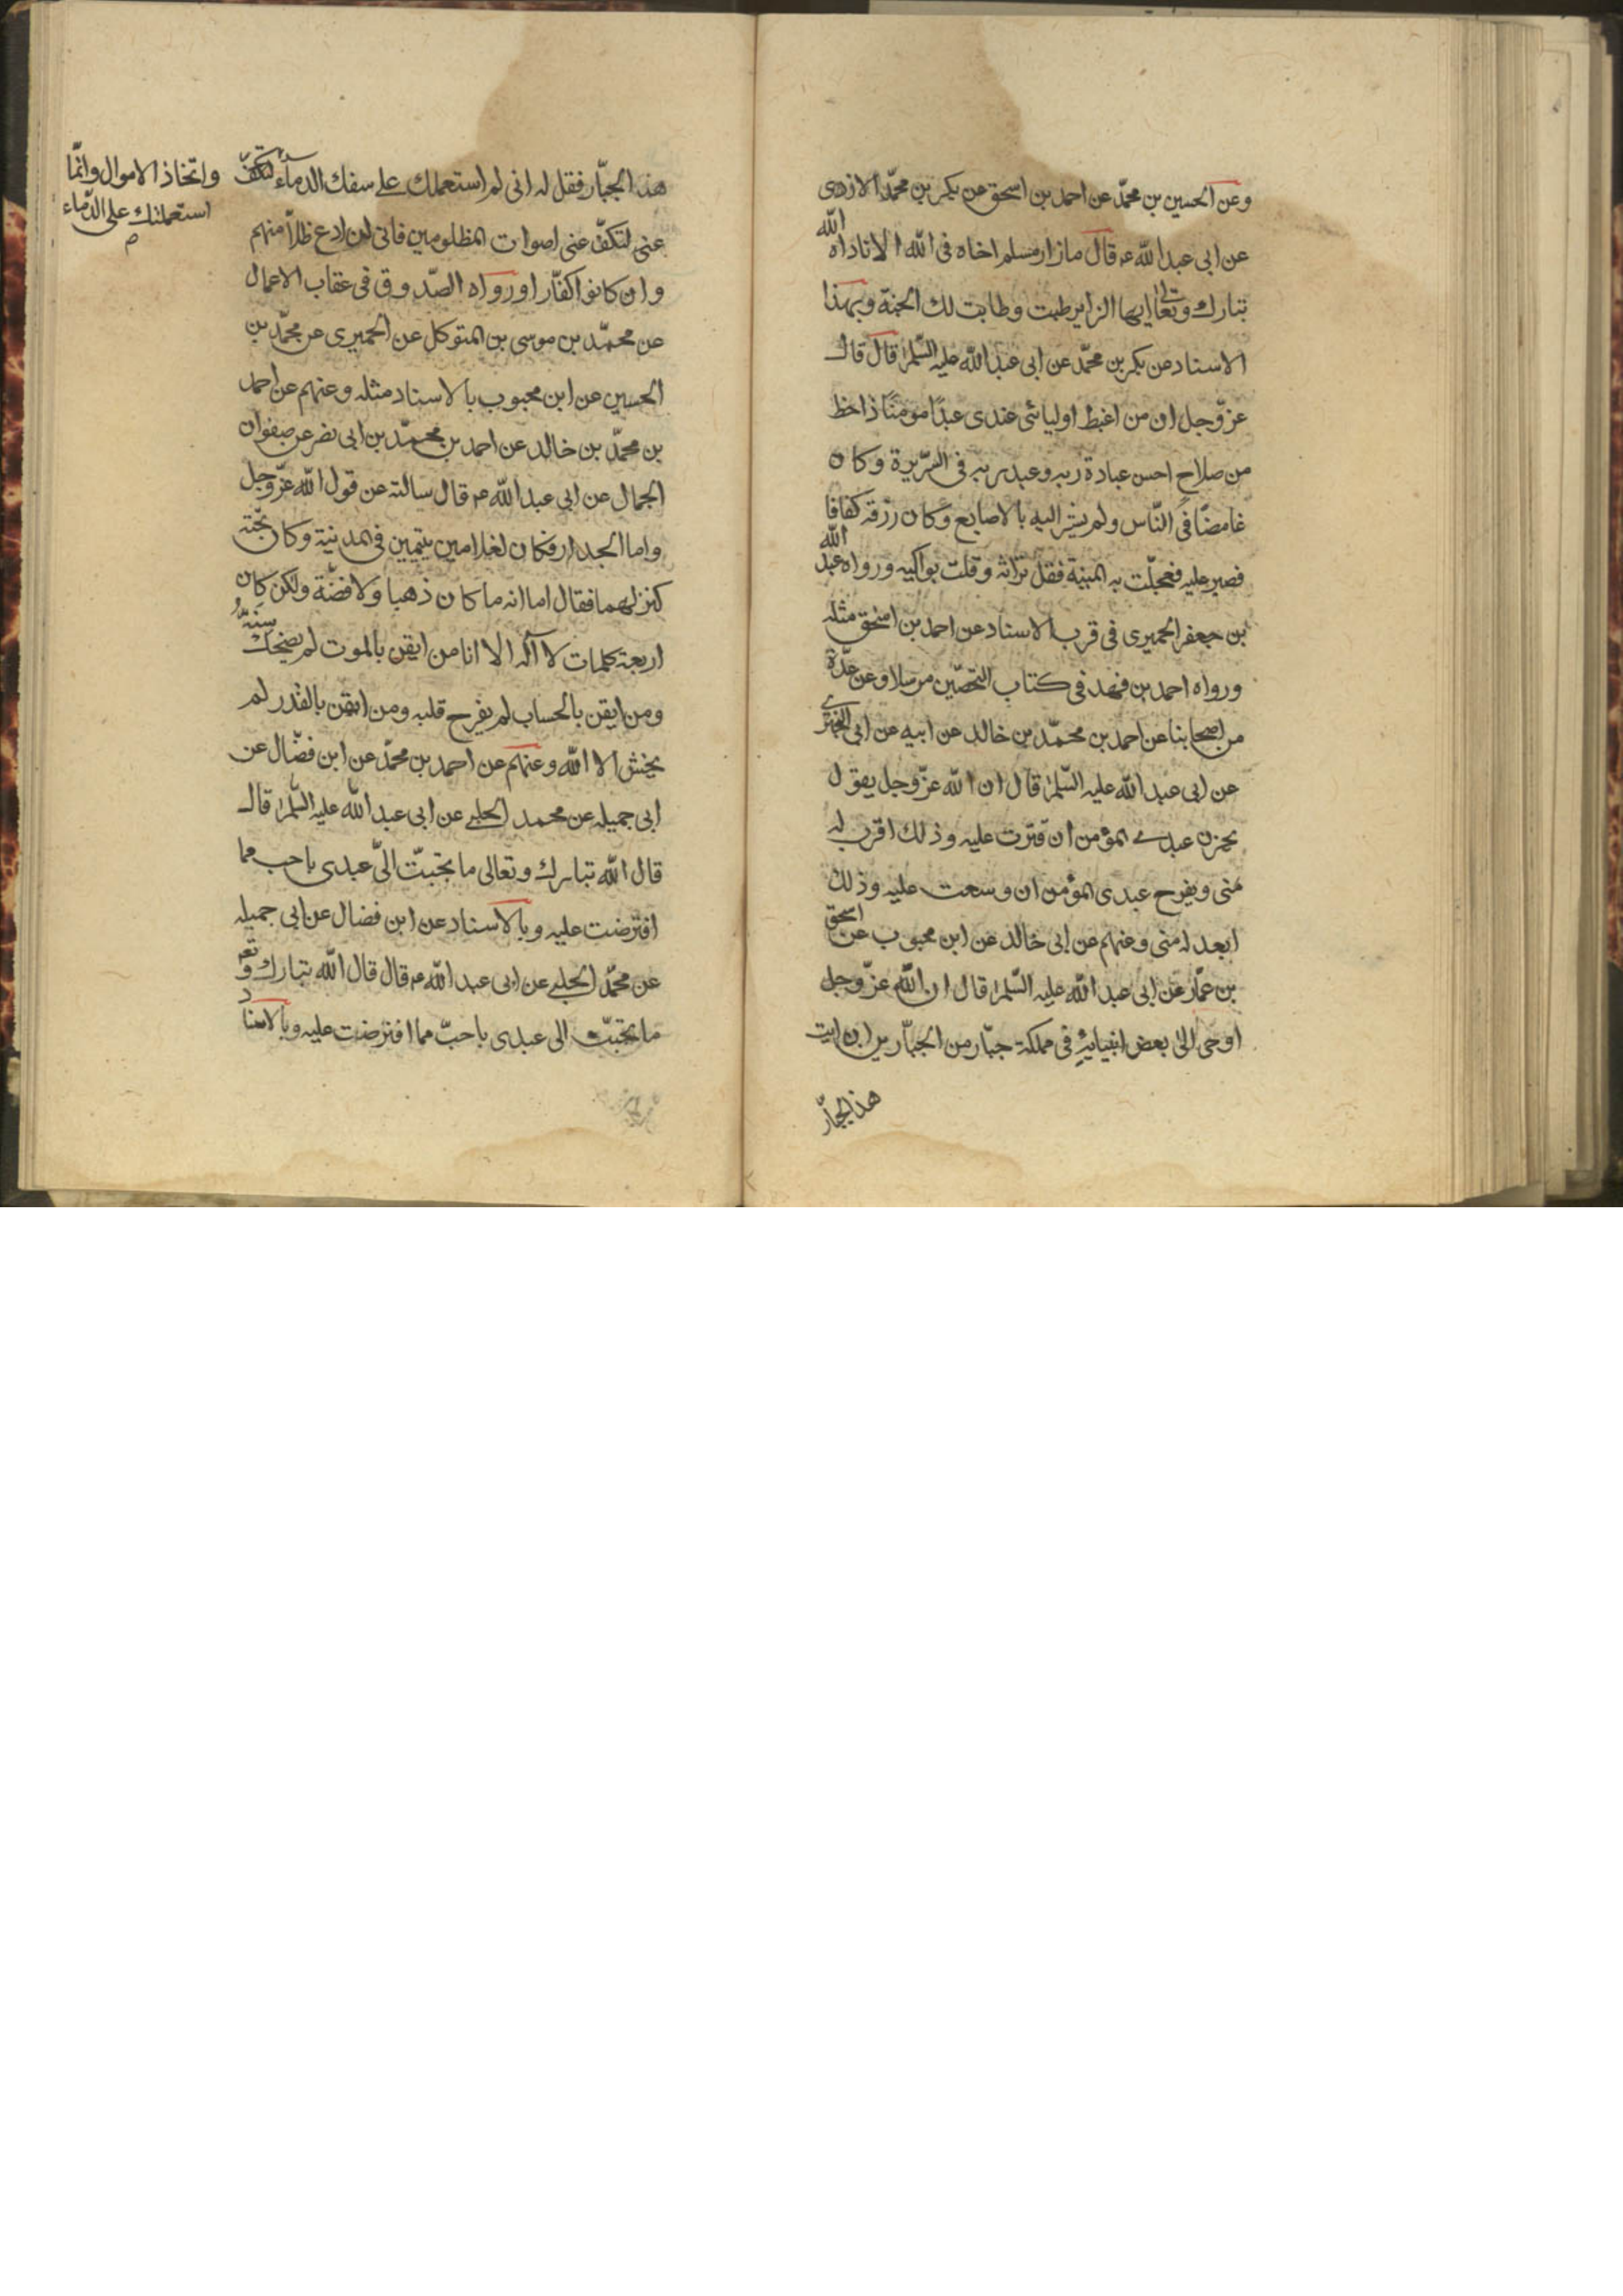 وعن الحسين بن محمّد عن احمد بن اسحق عن بكر بن محمّد الازدى
عن ابى عبد الله ع قال ما زار مسلم اخاه فى الله الا ناداه الله
تبارك وتعالى ايها الزاير طبت وطابت لك الجنة وبهذا
الاسناد عن بكر بن محمّد عن ابى عبد الله عليه السّلم قال قال
عزّوجل ان من اغبط اوليائى عندى عبدًا مومنًا ذا حظ
من صلاح احسن عبادة ربه وعبد ربه فى السّريرة وكان
غامضًا فى النّاس ولم يشر اليه بالاصابع وكان رزقه كفافا
فصبر عليه فعجلّت به المنية فقل تراثه وقلت بواكيه ورواه عبد الله
بن جعفر الحميرى فى قرب الاسناد عن احمد بن اسحق مثله
ورواه احمد بن فهد فى كتاب التحصّين مرسلا وعن عدّة
من اصحابنا عن احمد بن محمّد بن خالد عن ابيه عن ابى البخترى
عن ابى عبد الله عليه السّلم قال ان الله عزّوجل يقول
يحزن عبدى المؤمن ان قترت عليه وذلك اقرب له
منى ويفرح عبدى المؤمن ان وسعت عليه وذلك
ابعد له منى وعنهم عن ابى خالد عن ابن محبوب عن اسحق
بن عمّار عن ابى عبد الله عليه السّلم قال ان الله عزّوجل
اوحى الى بعض انبيائه فى مملكة جبّار من الجبّارين ان ايت
هذ الجبّار
هذ الجبّار فقل له انى لم استعملك على سفك الدمآء لتكفّ
واتّخاذ الاموال وانّما
استعملتك على الدّماء
م
عنى لتكفّ عنى اصوات المظلومين فانى لن ادع ظلامتهم
وان كانوا كفّارا ورواه الصّدوق فى عقاب الاعمال
عن محمّد بن موسى بن المتوكل عن الحميرى عن محمّد بن
الحسين عن ابن محبوب بالاسناد مثله وعنهم عن احمد
بن محمّد بن خالد عن احمد بن محمّد بن ابى نصر عن صفوان
الجمال عن ابى عبد الله ع قال سالته عن قول الله عزّوجل
واما الجدار فكان لغلامين يتيمين فى المدينة وكان تحته
كنز لهما فقال اما انه ما كان ذهبا ولا فضّة ولكن كان
اربعة كلمات لا آله الا انا من ايقن بالموت لم يضحك سنّه
ومن ايقن بالحساب لم يفرح قلبه ومن ايقن بالقدر لم
يخش الا الله وعنهم عن احمد بن محمّد عن ابن فضّال عن
ابى جميله عن محمد الحلبى عن ابى عبد الله عليه السّلم قال
قال الله تبارك وتعالى ما تحببّ الىّ عبدى باحب مما
افترضت عليه وبالاسناد عن ابن فضال عن ابى جميله
عن محمّد الحلبى عن ابى عبد الله ع قال قال الله تبارك وتعه
ما تحببّ الى عبدى باحبّ مما افترضت عليه وبالاسناد